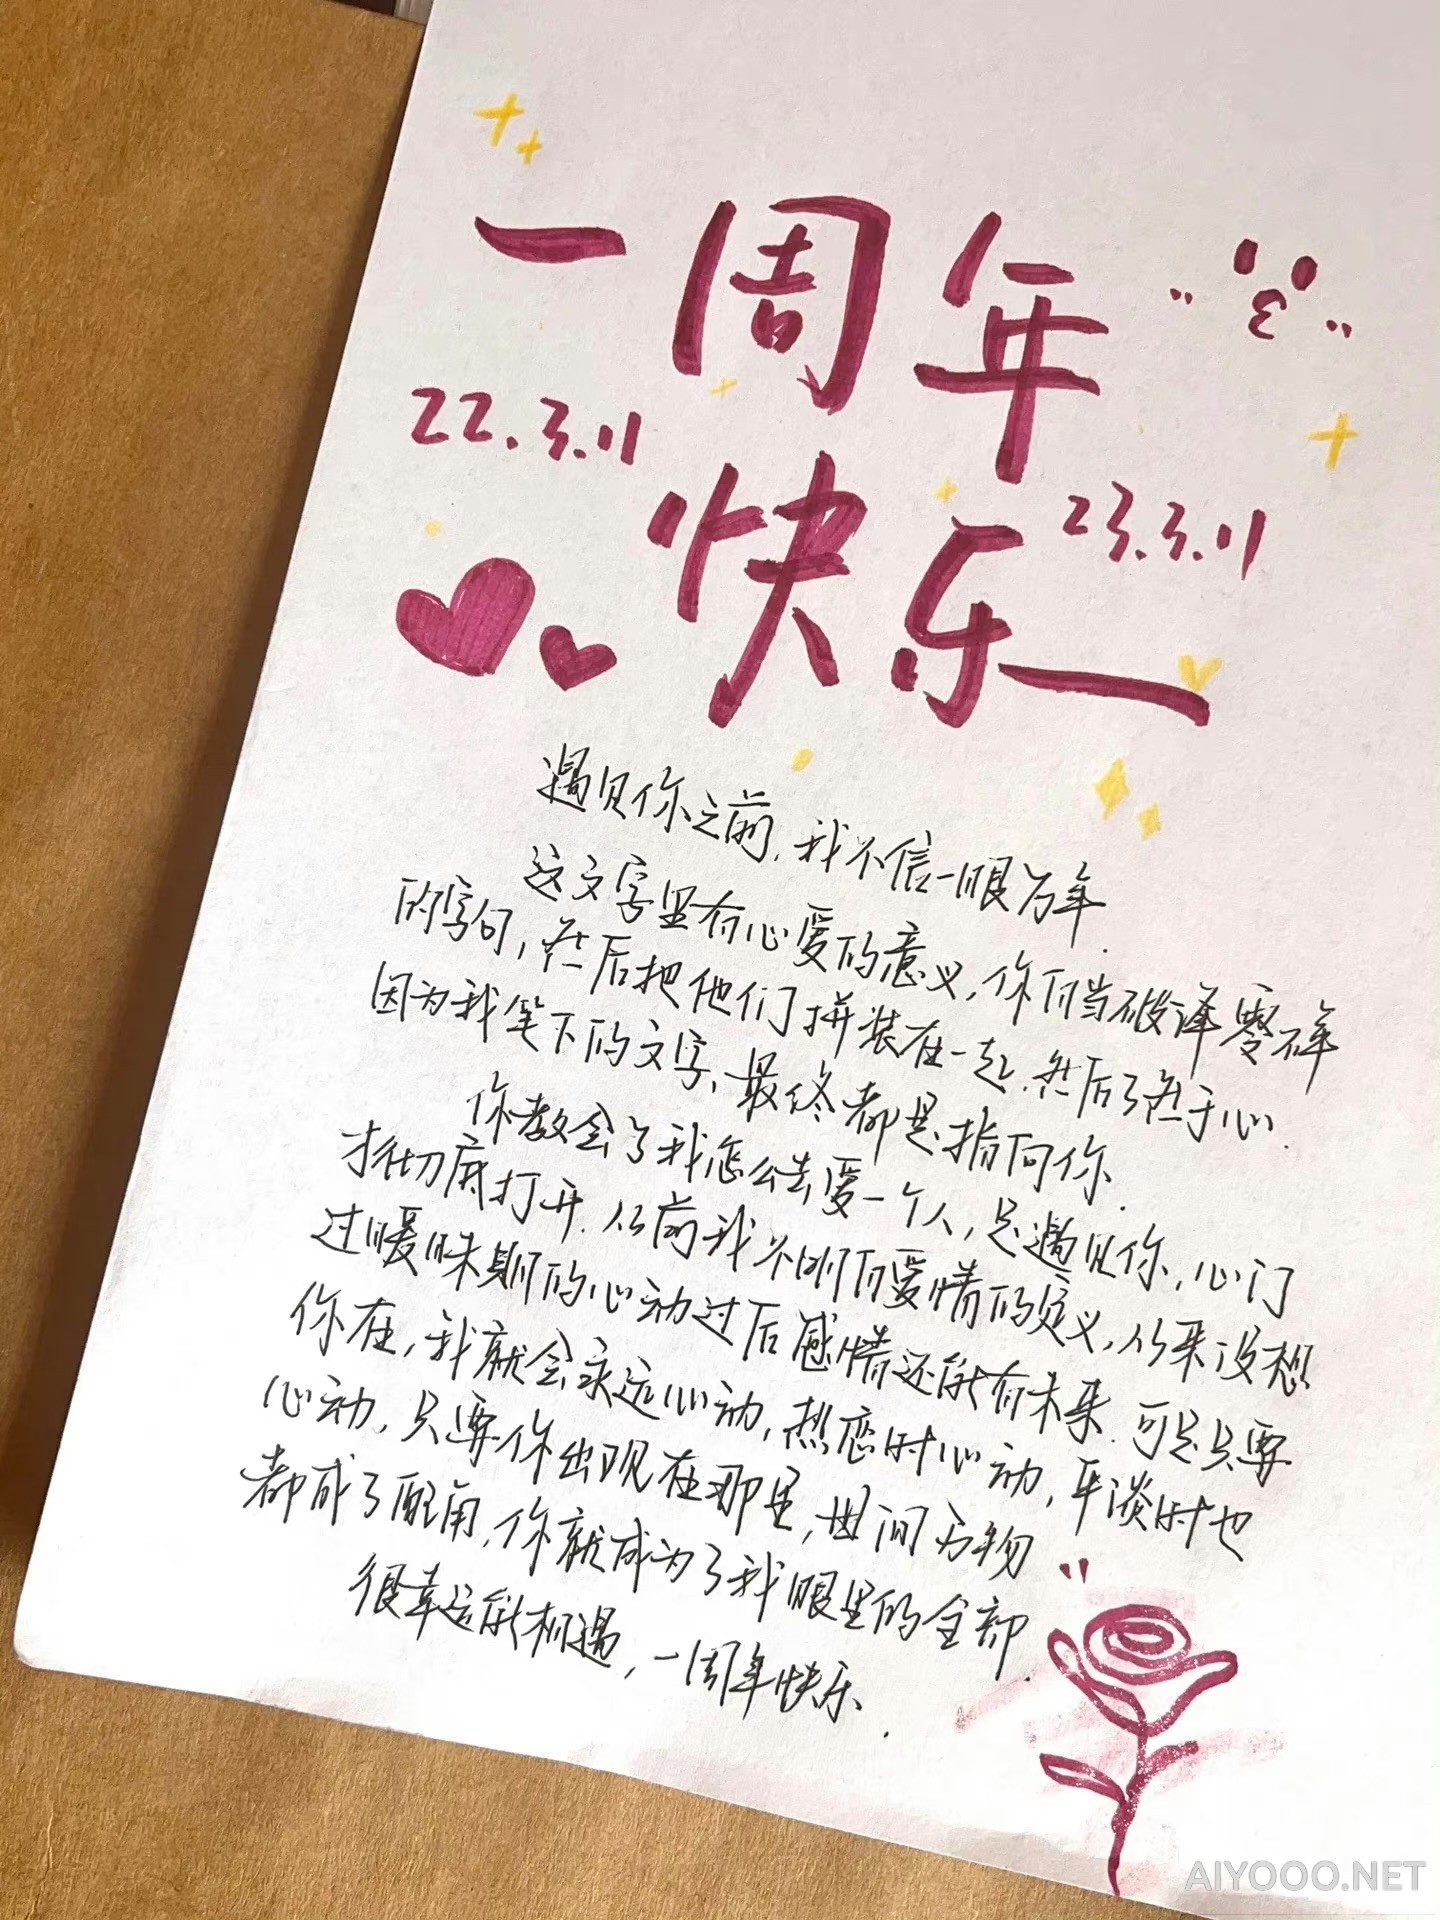 一周年
22.3.11
快乐
23.3.11
遇见你之前,我不信一眼万年.
这文字里有心爱的意义,你应当破译零碎
的字句,然后把他们拼装在一起.然后了然于心.
因为我笔下的文字,最终都是指向你.
你教会了我怎么去爱一个人,是遇见你,心门
才彻底打开.从前我不明白爱情的定义,从来没想
过暧昧期的心动过后感情还能有未来.可是只要
你在,我就会永远心动,热恋时心动,平淡时也
心动.只要你出现在那里,世间万物
都成了配角,你就成为了我眼里的全部.
很幸运能相遇,一周年快乐.
AIYOOO.NET